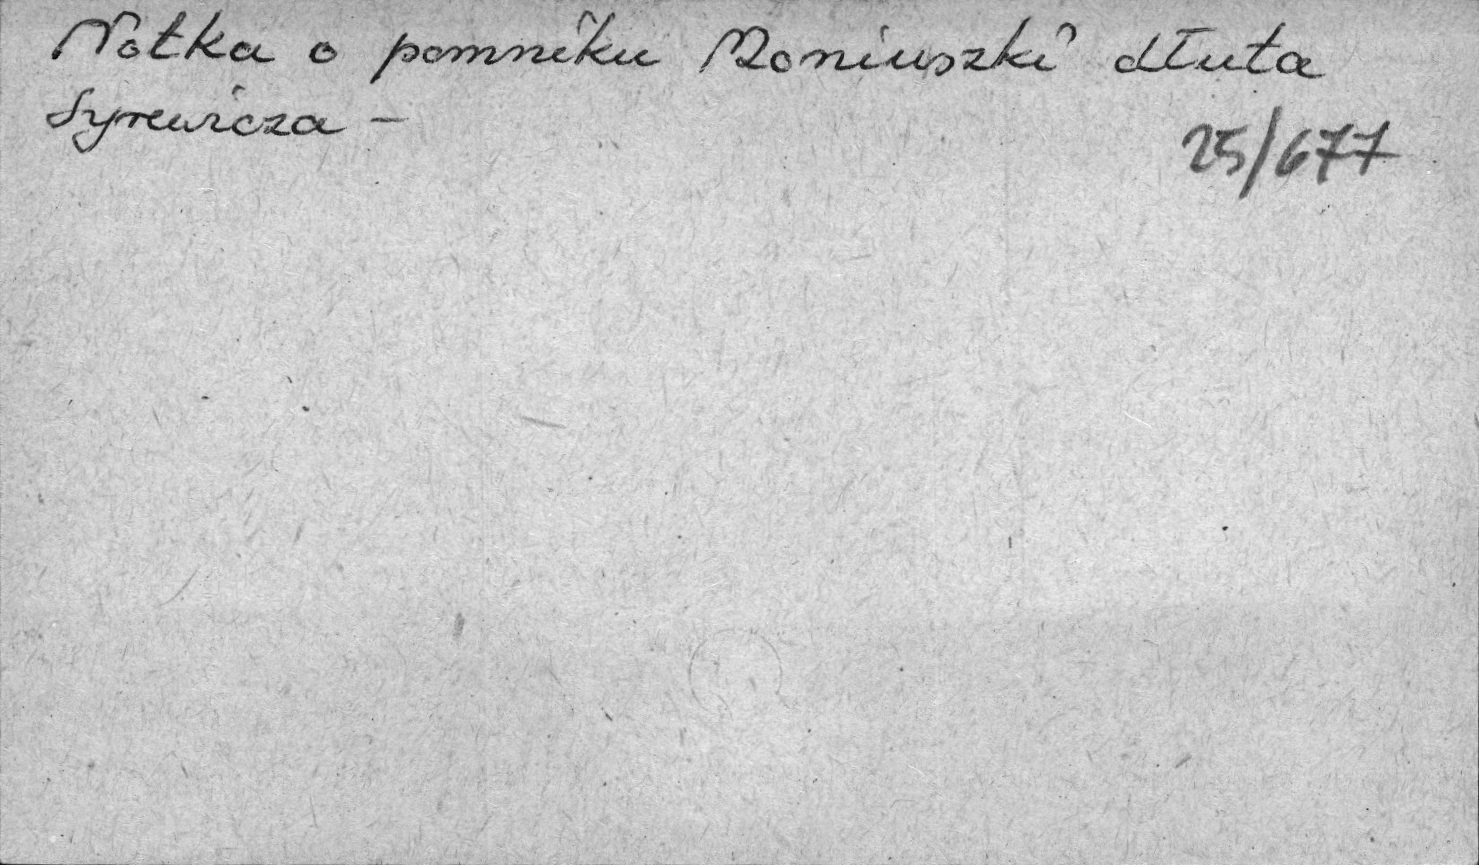 Notka o pomniku Moniuszki dłuta
Syrewicza -
25/677